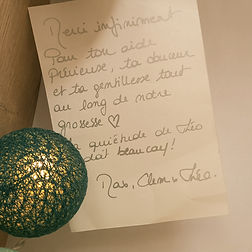 Merci infiniment
Pour ton aide
Précieuse, ta douceur
et ta gentillesse tout
au long de notre
grossesse ♡
la quiétude de Théo
doit beaucoup!
Clem Théo.